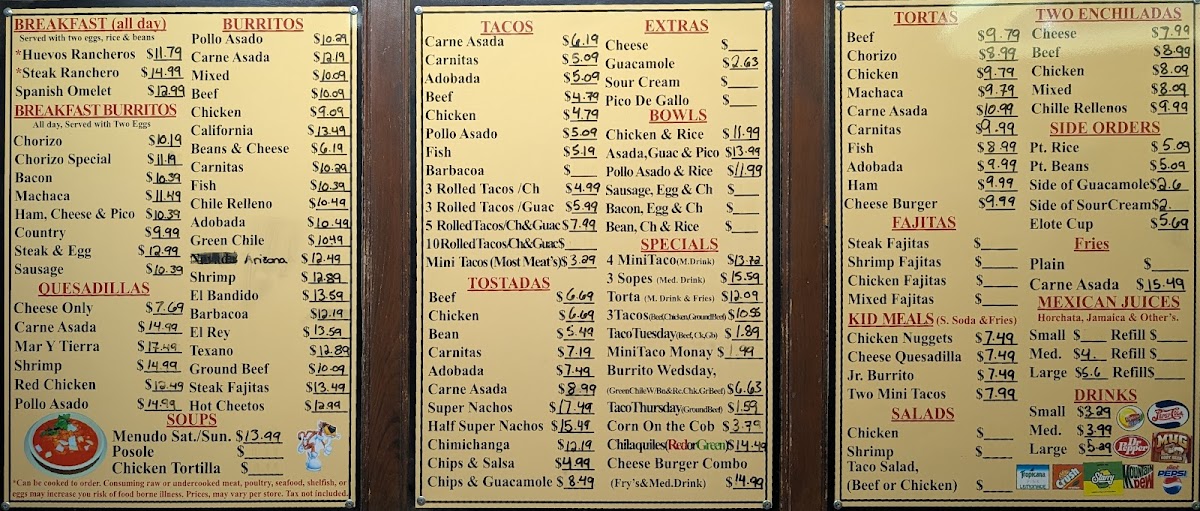 BREAKFAST (all day)
Served with two eggs, rice & beans
*Huevos Rancheros $11.79
*Steak Ranchero $14.99
Spanish Omelet $12.99
BREAKFAST BURRITOS
All day, Served with Two Eggs
Chorizo $10.19
Chorizo Special $11.19
Bacon $10.39
Machaca $11.49
Ham, Cheese & Pico $10.39
Country $9.99
Steak & Egg $12.99
Sausage $10.39
QUESADILLAS
Cheese Only $7.69
Carne Asada $14.99
Mar Y Tierra $17.49
Shrimp $14.99
Red Chicken $12.49
Pollo Asado $14.99
BURRITOS
Pollo Asado $10.29
Carne Asada $12.19
Mixed $10.09
Beef $10.09
Chicken $9.09
California $13.49
Beans & Cheese $6.19
Carnitas $10.29
Fish $10.39
Chile Relleno $10.49
Adobada $10.49
Green Chile $10.49
Arizona $12.49
Shrimp $12.89
El Bandido $13.59
Barbacoa $12.19
El Rey $13.59
Texano $12.89
Ground Beef $10.09
Steak Fajitas $13.49
Hot Cheetos $12.99
SOUPS
Menudo Sat./Sun. $13.99
Posole $
Chicken Tortilla $
*Can be cooked to order. Consuming raw or undercooked meat, poultry, seafood, shelfish, or
eggs may increase you risk of food borne illness. Prices, may vary per store. Tax not included.
TACOS
Carne Asada $6.19
Carnitas $5.09
Adobada $5.09
Beef $4.79
Chicken $4.79
Pollo Asado $5.09
Fish $5.19
Barbacoa $
3 Rolled Tacos /Ch $4.99
3 Rolled Tacos /Guac $5.99
5 Rolled Tacos/Ch&Guac $7.99
10 Rolled Tacos/Ch&Guac $
Mini Tacos (Most Meat's) $3.29
TOSTADAS
Beef $6.69
Chicken $6.69
Bean $5.49
Carnitas $7.19
Adobada $7.49
Carne Asada $8.99
Super Nachos $17.49
Half Super Nachos $15.49
Chimichanga $12.19
Chips & Salsa $4.99
Chips & Guacamole $8.49
EXTRAS
Cheese $
Guacamole $2.63
Sour Cream $
Pico De Gallo $
BOWLS
Chicken & Rice $11.99
Asada,Guac & Pico $13.99
Pollo Asado & Rice $11.99
Sausage, Egg & Ch $
Bacon, Egg & Ch $
Bean, Ch & Rice $
SPECIALS
4 MiniTaco(M.Drink) $13.72
3 Sopes (Med. Drink) $15.59
Torta (M. Drink & Fries) $12.09
3Tacos(Beef,Chicken,GroundBeef) $10.58
TacoTuesday(Beef, Ck,Gb) $1.89
MiniTaco Monay $1.99
Burrito Wedsday,
(GreenChileW/Bn&Rc.Chk.GrBeef) $6.63
TacoThursday(GroundBeef) $1.59
Corn On the Cob $3.79
Chilaquiles(RedorGreen) $14.49
Cheese Burger Combo
(Fry's&Med.Drink) $14.99
TORTAS
Beef $9.79
Chorizo $8.99
Chicken $9.79
Machaca $9.79
Carne Asada $10.99
Carnitas $9.99
Fish $8.99
Adobada $9.99
Ham $9.99
Cheese Burger $9.99
FAJITAS
Steak Fajitas $
Shrimp Fajitas $
Chicken Fajitas $
Mixed Fajitas $
KID MEALS (S. Soda &Fries)
Chicken Nuggets $7.49
Cheese Quesadilla $7.49
Jr. Burrito $7.49
Two Mini Tacos $7.99
SALADS
Chicken $
Shrimp $
Taco Salad,
(Beef or Chicken) $
TWO ENCHILADAS
Cheese $7.99
Beef $8.99
Chicken $8.09
Mixed $8.09
Chille Rellenos $9.99
SIDE ORDERS
Pt. Rice $5.09
Pt. Beans $5.09
Side of Guacamole $2.6
Side of SourCream $2.
Elote Cup $5.69
Fries
Plain $
Carne Asada $15.49
MEXICAN JUICES
Horchata, Jamaica & Other's.
Small $ Refill $
Med. $4. Refill $
Large $5.6 Refill $
DRINKS
Small $3.29
Med. $3.99
Large $5.29
Pepsi-Cola
Dr Pepper
MUG
Tropicana
Crush
Starry
MOUNTAIN DEW
diet PEPSI